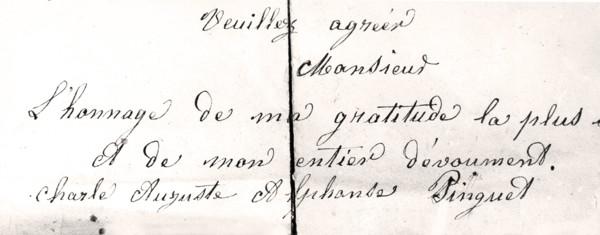 Veuillez agréer
Monsieur
L'honnage de ma gratitude la plus
Et de mon entier dévoument.
Charle Auguste Alphonse Pinguet